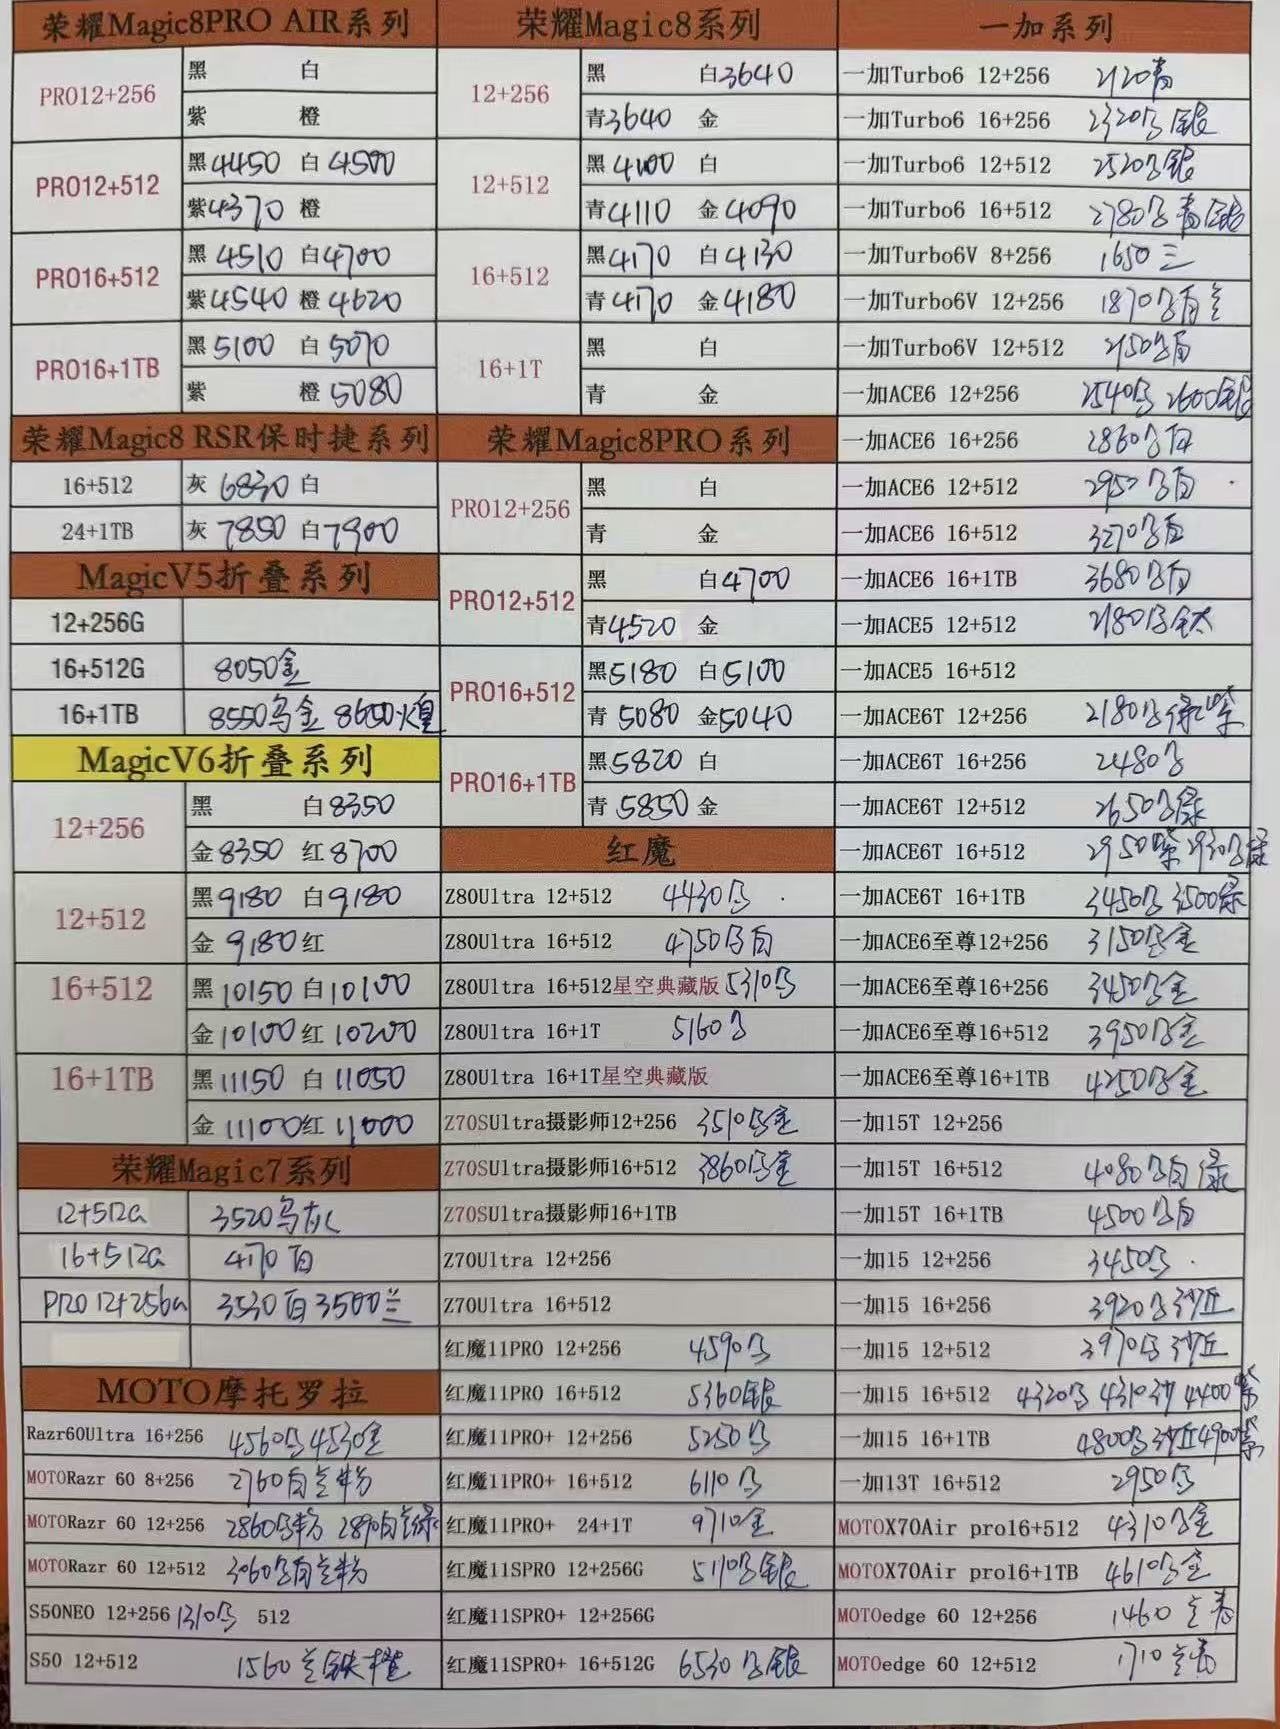 荣耀Magic8PRO AIR系列
PRO12+256
黑 白
紫 橙
PRO12+512
黑4450 白4500
紫4370 橙
PRO16+512
黑4510 白4700
紫4540 橙4620
PRO16+1TB
黑5100 白5070
紫 橙5080
荣耀Magic8 RSR保时捷系列
16+512 灰6830 白
24+1TB 灰7850 白7900
MagicV5折叠系列
12+256G
16+512G 8050金
16+1TB 8550乌金 8650火皇
MagicV6折叠系列
12+256
黑 白8350
金8350 红8700
12+512
黑9180 白9180
金9180红
16+512
黑10150 白10100
金10100红10200
16+1TB
黑11150 白11050
金11100红11000
荣耀Magic7系列
12+512a 3520乌灰
16+512a 4170白
PRO 12+256a 3530白3500兰
MOTO摩托罗拉
Razr60Ultra 16+256 4560乌4530金
MOTORazr 60 8+256 2760白兰粉
MOTORazr 60 12+256 2860乌粉 2890白兰绿
MOTORazr 60 12+512 3060乌白兰粉
S50NEO 12+256 1310乌 512
S50 12+512 1560兰铁橙
荣耀Magic8系列
12+256
黑 白3640
青3640 金
12+512
黑4100 白
青4110 金4090
16+512
黑4170 白4130
青4170 金4180
16+1T
黑 白
青 金
荣耀Magic8PRO系列
PRO12+256
黑 白
青 金
PRO12+512
黑 白4700
青4520 金
PRO16+512
黑5180 白5100
青5080 金5040
PRO16+1TB
黑5820 白
青5850 金
红魔
Z80Ultra 12+512 4430乌
Z80Ultra 16+512 4750乌白
Z80Ultra 16+512星空典藏版 5310乌
Z80Ultra 16+1T 5160乌
Z80Ultra 16+1T星空典藏版
Z70SUltra摄影师12+256 3510乌金
Z70SUltra摄影师16+512 3860乌金
Z70SUltra摄影师16+1TB
Z70Ultra 12+256
Z70Ultra 16+512
红魔11PRO 12+256 4590乌
红魔11PRO 16+512 5360银
红魔11PRO+ 12+256 5250乌
红魔11PRO+ 16+512 6110乌
红魔11PRO+ 24+1T 9710金
红魔11SPRO 12+256G 5110乌银
红魔11SPRO+ 12+256G
红魔11SPRO+ 16+512G 6530乌银
一加系列
一加Turbo6 12+256 2120青
一加Turbo6 16+256 2320乌银
一加Turbo6 12+512 2520乌银
一加Turbo6 16+512 2780乌青银
一加Turbo6V 8+256 1650三
一加Turbo6V 12+256 1870乌白兰
一加Turbo6V 12+512 2150乌白
一加ACE6 12+256 2540乌 2600银
一加ACE6 16+256 2860乌白
一加ACE6 12+512 2950乌白
一加ACE6 16+512 3270乌白
一加ACE6 16+1TB 3680乌白
一加ACE5 12+512 2180乌钛
一加ACE5 16+512
一加ACE6T 12+256 2180乌绿紫
一加ACE6T 16+256 2480乌
一加ACE6T 12+512 2650乌绿
一加ACE6T 16+512 2950紫 2930乌绿
一加ACE6T 16+1TB 3450乌 3500绿
一加ACE6至尊12+256 3150乌金
一加ACE6至尊16+256 3450乌金
一加ACE6至尊16+512 3950乌金
一加ACE6至尊16+1TB 4250乌金
一加15T 12+256
一加15T 16+512 4080乌白绿
一加15T 16+1TB 4500乌白
一加15 12+256 3450乌
一加15 16+256 3920乌沙丘
一加15 12+512 3970乌沙丘
一加15 16+512 4320乌 4310沙 4400紫
一加15 16+1TB 4800乌沙丘4900紫
一加13T 16+512 2950乌
MOTOX70Air pro16+512 4310乌金
MOTOX70Air pro16+1TB 4610乌金
MOTOedge 60 12+256 1460兰青
MOTOedge 60 12+512 1710兰青